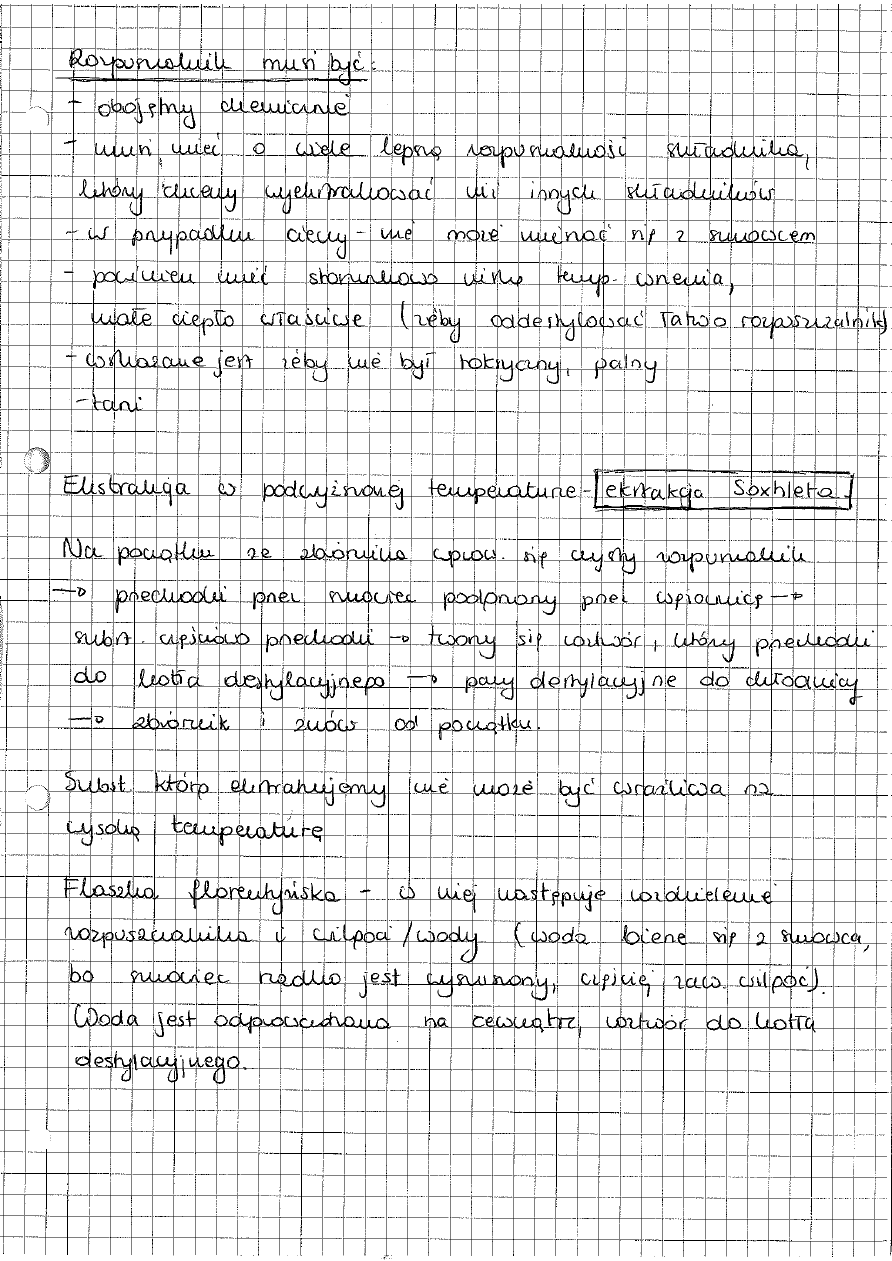 Rozpuszczalnik musi być:
- obojętny chemicznie
- musi mieć o wiele lepszą rozpuszczalność składnika,
który chcemy wyekstrahować niż innych składników
- w przypadku cieczy - nie może mieszać się z surowcem
- powinien mieć stosunkowo niską temp. wrzenia,
małe ciepło właściwe (żeby oddestylować łatwo rozpuszczalnik)
- wskazane jest żeby nie był toksyczny, palny
- tani
Ekstrakcja w podwyższonej temperaturze - ekstrakcja Soxhleta
Na początku ze zbiornika wprow. się czysty rozpuszczalnik
→ przechodzi przez surowiec podgrzany przez wężownicę →
subst. częściowo przechodzi → tworzy się roztwór, który przechodzi
do kotła destylacyjnego → pary destylacyjne do chłodnicy
→ zbiornik i znów od początku.
Subst którą ekstrahujemy nie może być wrażliwa na
wysoką temperaturę
Flaszka florentyńska - w niej następuje rozdzielenie
rozpuszczalnika i wilgoci/wody (woda bierze się z surowca,
bo surowiec rzadko jest wysuszony, częściej zaw. wilgoć).
Woda jest odprowadzana na zewnątrz, roztwór do kotła
destylacyjnego.